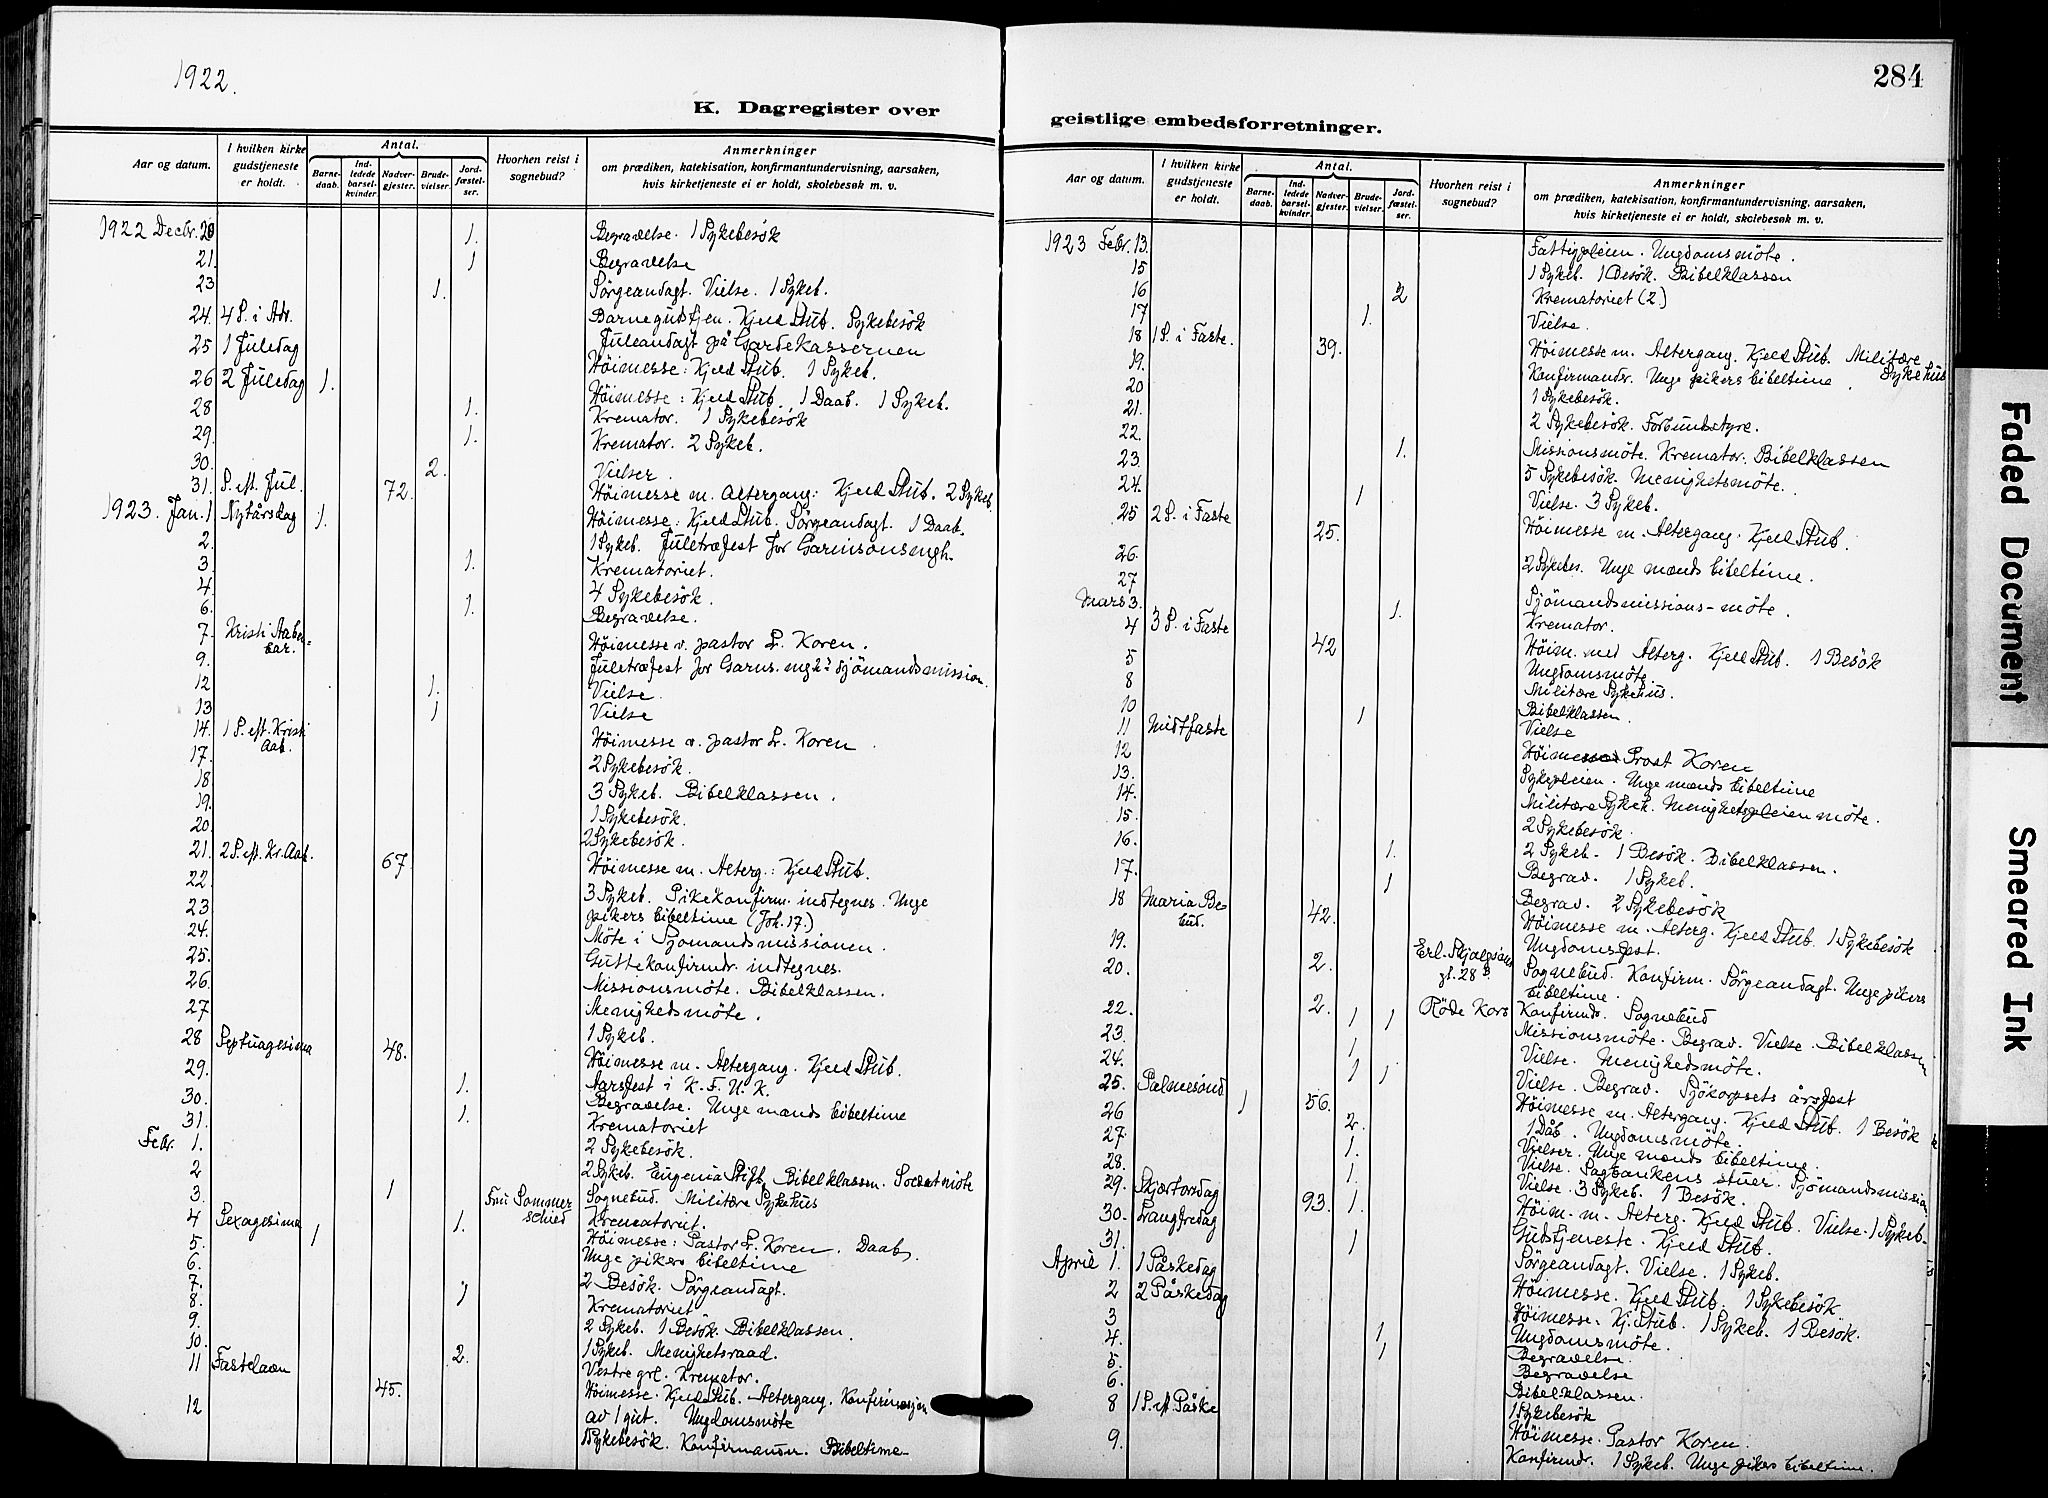 1922.
K. Dagregister over
Aar og datum. I hvilken kirke gudstjeneste er holdt. Antal. Barne-daab. Ind-ledede barsel-kvinder. Nadver-gjester. Brude-vielser. Jord-fæstel-ser. Hvorhen reist i sognebud? Anmerkninger
om prædiken, katekisation, konfirmantundervisning, aarsaken,
hvis kirketjeneste ei er holdt, skolebesøk m. v.
1922 Decbr. 20 1. Begravelse. 1 Sykebesök
21. 1 Begravelse
23 1. Sörgeandagt. Vielse. 1 Sykeb.
24. 4 S. i Adv. Barnegudstjen. Kjeld Stub. Sykebesök
25 1 Juledag Juleandagt på Gardekassernen
Höimesse: Kjeld Stub. 1 Sykeb.
26 2 Juledag 1. Höimesse: Kjeld Stub. 1 Daab. 1 Sykeb.
28 1. Kremator. 1 Sykebesök
29. 1. Kremator. 2 Sykeb.
30. 2. Vielser.
31. S. eft. Jul. 72. Höimesse m. Altergang: Kjeld Stub. 2 Sykeb.
1923. Jan. 1 Nytårsdag 1. Höimesse: Kjeld Stub. Sörgeandagt. 1 Daab.
2. 1 Sykeb. Juletræfest for Garnisonsmgh.
3. 1. Krematoriet.
4. 4 Sykebesök.
6. 1. Begravelse.
7. Kristi Aabenbar. Höimesse v. pastor L. Koren.
9. Juletræfest for Garns. mgh. sjömandsmission.
12 1. Vielse.
13 1 Vielse
14. 1 S. eft. Kristi Aab. Höimesse v. pastor L. Koren.
17. 2 Sykebesök.
18 3 Sykeb. Bibelklassen.
19. 1 Sykebesök.
20. 2 Sykebesök.
21. 2 S. eft. Kr. Aab. 67. Höimesse m. Alterg.: Kjeld Stub.
22. 3 Sykeb. Pikekonfirm. indtegnes. Unge
pikers bibeltime (Joh. 17.)
23 Möte i Sjömandsmissionen.
24. Guttekonfirmdr. indtegnes.
25. Missionsmöte. Bibelklassen.
26. Menighedsmöte.
27 1 Sykeb.
28 Septuagesima 48. Höimesse m. Altergang. Kjeld Stub.
29. Aarsfest i K. F. U. K.
30. 1. Begravelse. Unge mænds bibeltime
31. 1. Krematoriet
Febr. 1. 2 Sykebesök.
2 2 Sykeb. Eugenia Stift, Bibelklassen. Soldatmöte
3. 1 Fru Sommerschied Sognebud. Militære Sykehus
4 Sexagesima 1 1. Krematoriet.
Höimesse: Pastor L. Koren. Daab.
5. Unge pikers bibeltime
6. 2 Besök. Sörgeandagt.
7. 1 Krematoriet
8. 2 Sykeb. 1 Besök. Bibelklassen.
9. 1 Sykeb. Menighetsraad.
10. 2. Vestre grl. Kremator.
11 Fastelavn 45. Höimesse. Kjeld Stub. Altergang. Konfirmasjon
av 1 gut. Ungdomsmöte
12 1 Sykebesök. Konfirmandr. Bibeltime
284
geistlige embedsforretninger.
Aar og datum. I hvilken kirke gudstjeneste er holdt. Antal. Barne-daab. Ind-ledede barsel-kvinder. Nadver-gjester. Brude-vielser. Jord-fæstel-ser. Hvorhen reist i sognebud? Anmerkninger
om prædiken, katekisation, konfirmantundervisning, aarsaken,
hvis kirketjeneste ei er holdt, skolebesøk m. v.
1923 Febr. 13. Fattigpleien. Ungdomsmöte.
15 1 Sykeb. 1 Besök. Bibelklassen
16 2 Krematoriet (2)
17 1. Vielse.
18 1 S. i Faste. 39. Höimesse m. Altergang. Kjeld Stub. Militære Sykehus
19. Konfirmandr. Unge pikers bibeltime.
20 1 Sykebesök.
21. 2 Sykebesök. Forbundsstyre.
22. 1. Missionsmöte. Kremator. Bibelklassen
23. 5 Sykebesök. Menighetsmöte.
24. 1 Vielse. 3 Sykeb.
25 2 S. i Faste 25. Höimesse m. Altergang. Kjeld Stub.
26. 2 Sykebes. Unge mænds bibeltime.
27 Sjömandsmissions-möte.
Mars 3. 1. Kremator.
4 3 S. i Faste 42 Höim. med Alterg. Kjeld Stub. 1 Besök
5 Ungdomsmöte
8 Militære Sykehus.
Bibelklassen.
10 1 Vielse
11 Midtfaste Höimesse Prost Koren
12 Sykepleien. Unge mænds bibeltime
13. Militære Sykeh. Menighetspleien möte.
14. 2 Sykebesök.
15. 2 Sykeb. 1 Besök. Bibelklassen.
16. 1. Begrav. 1 Sykeb.
17. 1 Begrav. 2 Sykebesök
18 Maria Bebud. 42. Höimesse m. Alterg. Kjeld Stub. 1 Sykebesök
19. Ungdomsfest.
20. 2. Erl. Skjalgsöns gt. 28 B Sognebud. Konfirm. Sörgeandagt. Unge pikers
bibeltime.
22. 2. 1 1 Röde Kors Konfirmds. Sognebud
Missionsmöte. Begrav. Vielse. Bibelklassen
23. 1 Vielse. Menighedsmöte.
24. 1 1 Vielse. Begrav. Sjökorpsets årsfest
25. Palmesönd 1 56. Höimesse m. Altergang. Kjeld Stub. 1 Besök
1 Dåb. Ungdomsmöte.
26 2. Vielser. Unge mænds bibeltime.
27. 1. Vielse. Sjömandsmission
28. 1. Vielse. 3 Sykeb. 1 Besök.
29. Skjærtorsdag 93. 1. Höim. m. Alterg. Kjeld Stub. Vielse. 1 Sykeb.
30. Langfredag Gudstjeneste. Kjeld Stub.
31. 1 Sörgeandagt. Vielse. 1 Sykeb.
April 1. 1 Påskedag Höimesse. Kjeld Stub. 1 Sykebesök
2 2 Påskedag Höimesse. Kj. Stub. 1 Sykeb. 1 Besök.
3 Ungdomsmöte.
4. 1 Begravelse.
5. 1 Begravelse
Bibelklassen.
6. 1 Sykebesök
8 1 S. eft. Påske Höimesse. Pastor Koren.
9. Konfirmdr. 1 Sykeb. Unge pikers bibeltime.
Faded Document
Smeared Ink